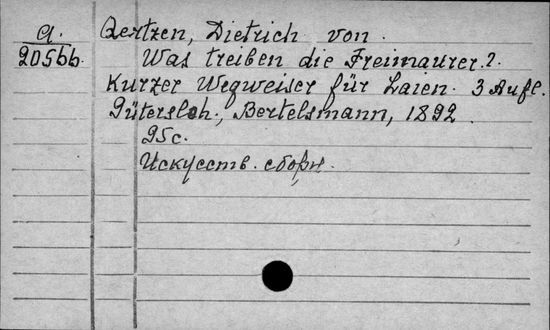 А. Oertzen, Dietrich von.
205бб. Was treiben die Freimaurer?
Kurzer Wegweiser für Laien. 3 Aufl.
Gütersloh., Bertelsmann, 1892.
95с.
Искусств. сборн.